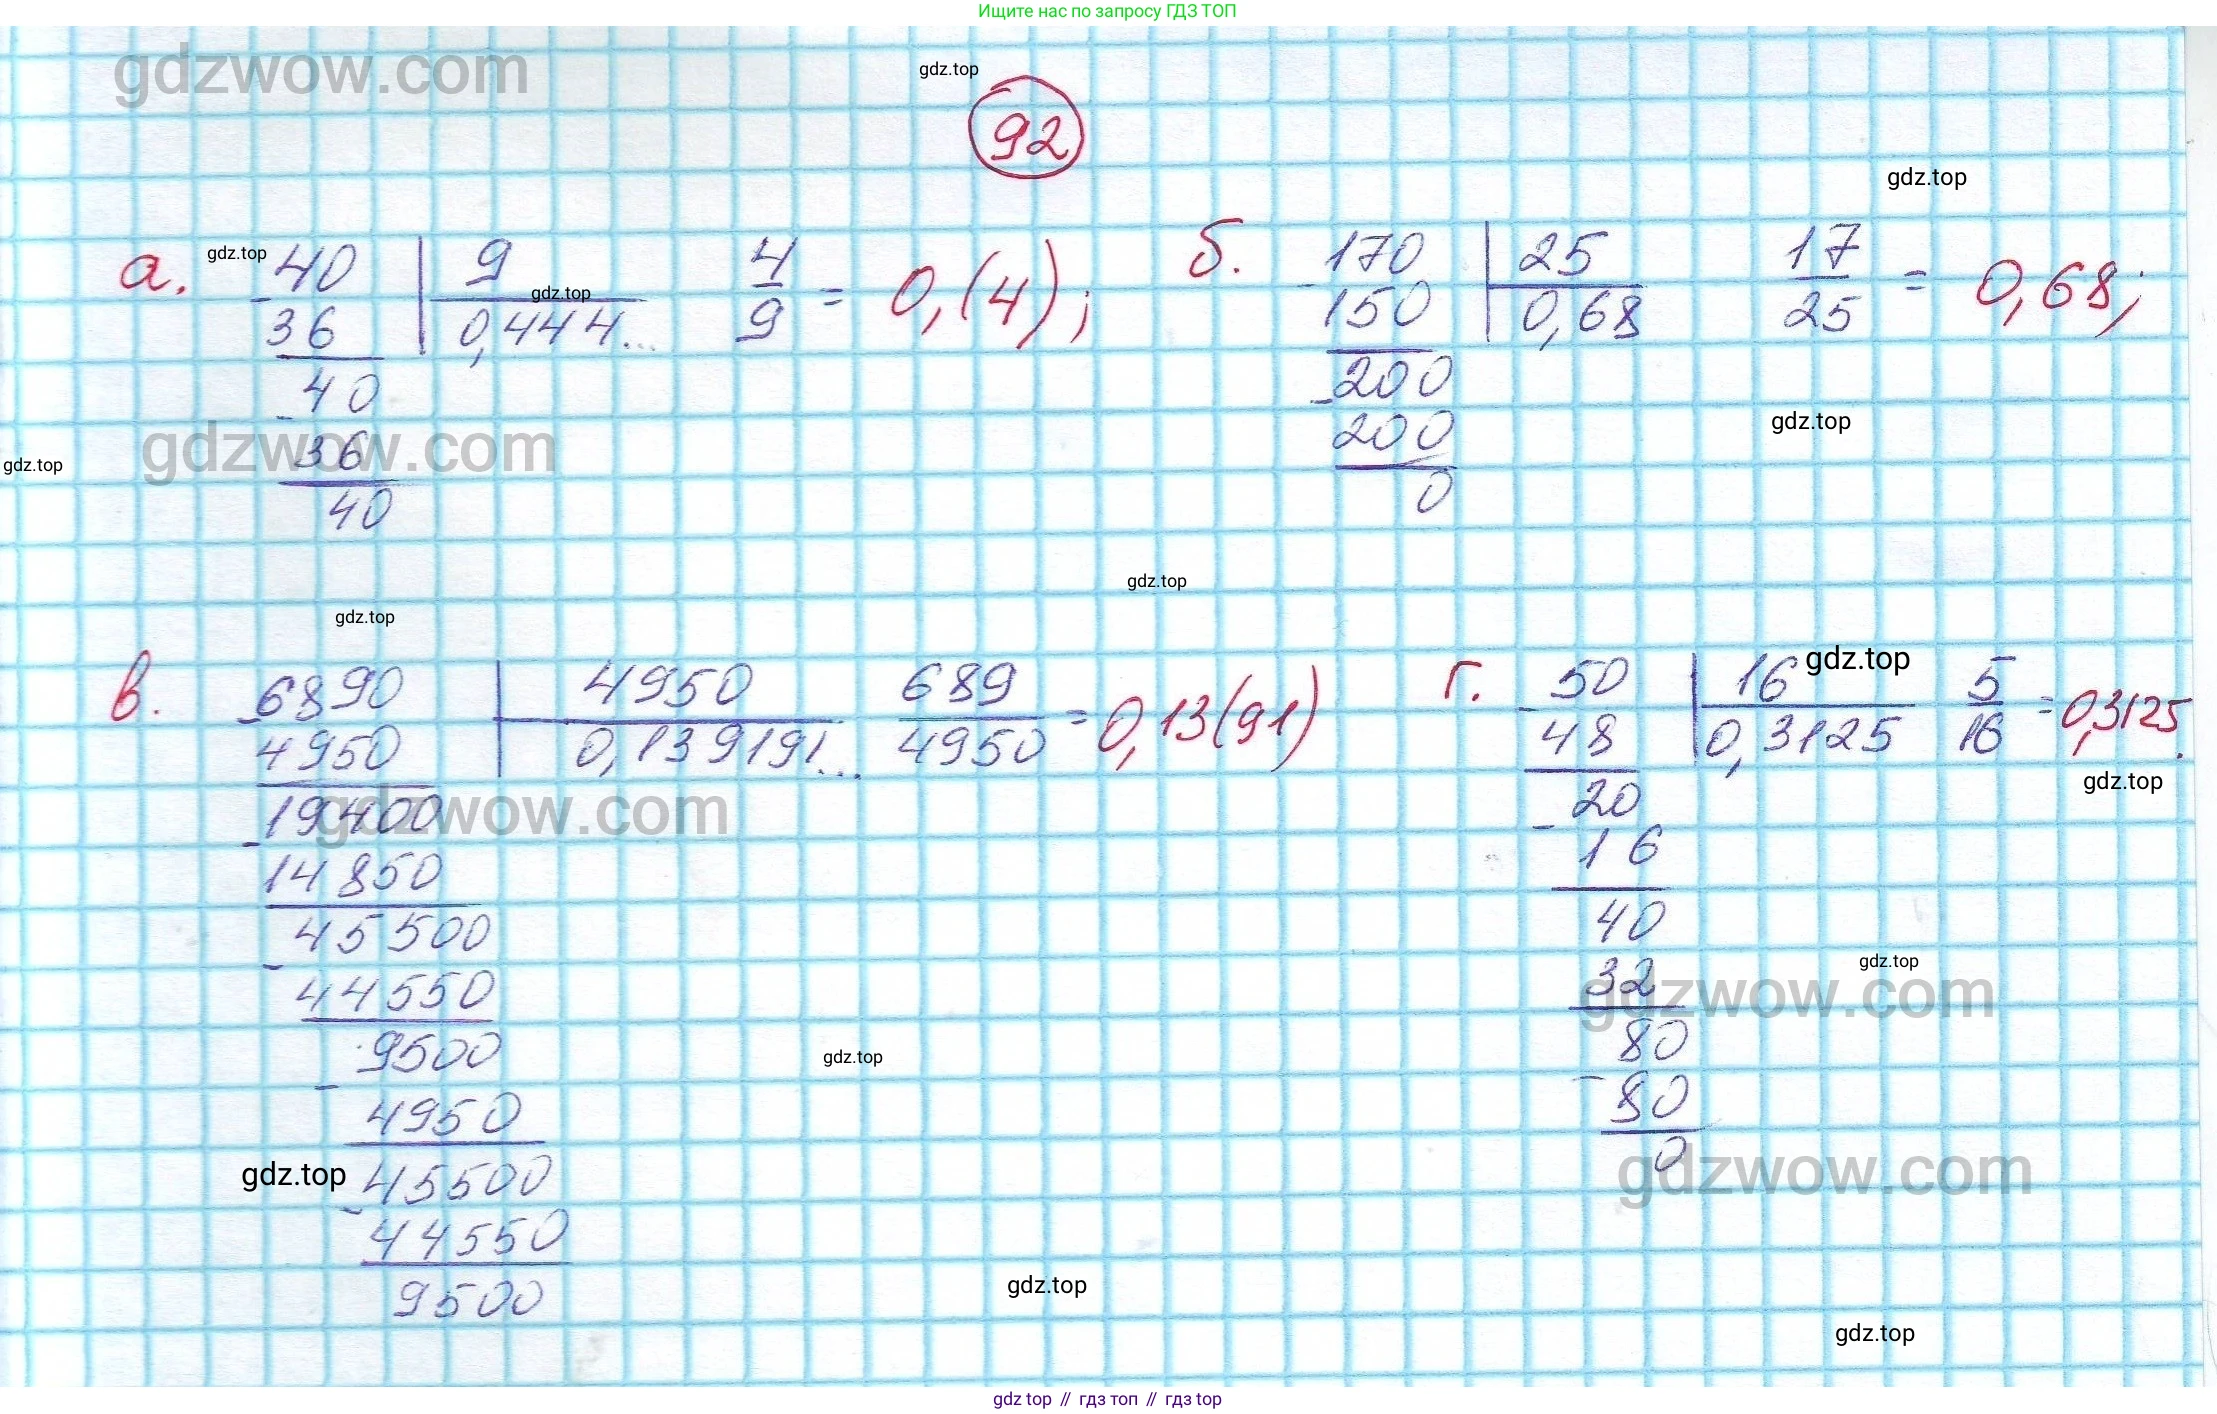 Ищите нас по запросу ГДЗ ТОП
gdzwow.com
gdz.top
92
gdz.top
а.
gdz.top
- 40 | 9
36
gdz.top
0,444...
40
- 36
40
4/9 = 0,(4);
б.
- 170 | 25
150
0,68
- 200
200
0
17/25 = 0,68;
gdz.top
gdzwow.com
gdz.top
gdz.top
gdz.top
в.
- 6890 | 4950
4950
0,139191...
- 19400
14850
- 45500
44550
- 9500
4950
- 45500
44550
9500
689/4950 = 0,13(91)
gdzwow.com
г.
- 50 | 16
48
0,3125
- 20
16
40
32
80
- 80
0
gdz.top
5/16 = 0,3125.
gdz.top
gdz.top
gdzwow.com
gdz.top
gdz.top
gdzwow.com
gdz.top
gdz.top
gdz top // гдз топ // gdz top